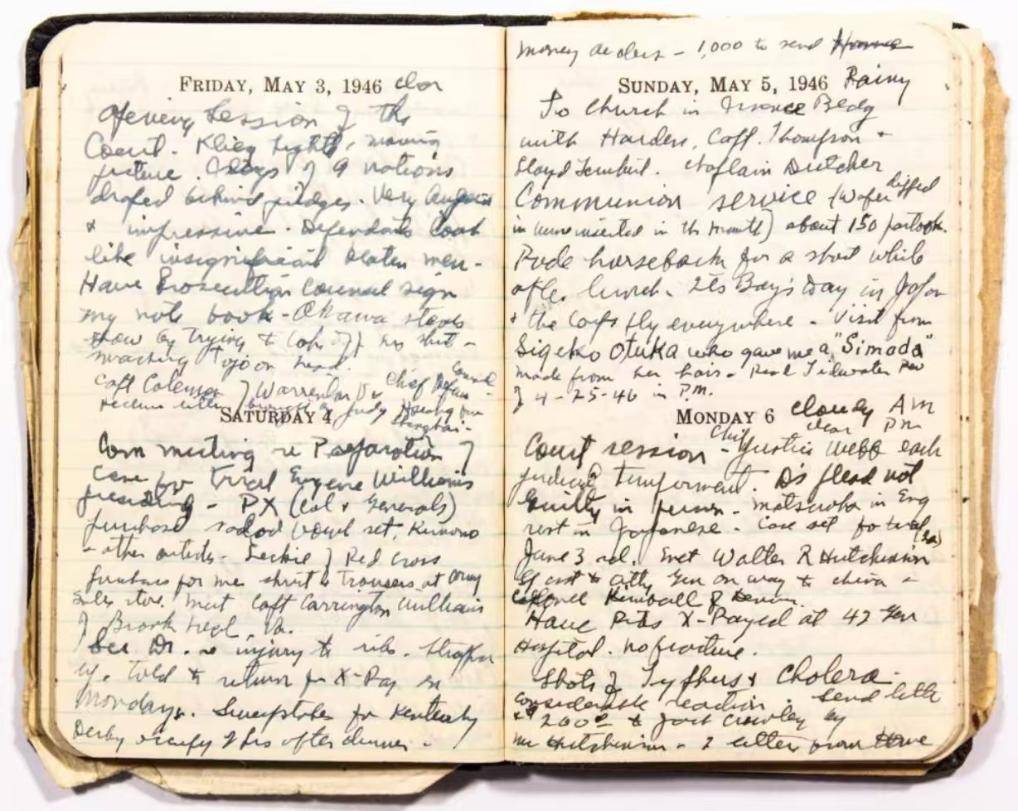 FRIDAY, MAY 3, 1946 clear
Opening Session of the
Court. Klieg Lights, moving
picture. Flags of 9 nations
draped behind judges. Very August
& impressive. Defendants look
like insignificant beaten men.
Have Prosecution Counsel sign
my note book - Okawa steals
show by trying to take off his shirt -
smacking Tojo on head.
Capt Coleman of Warrenton Va Chief Defense Counsel
receives letter Judy
Shanghai.
SATURDAY 4
Com meeting re Preparation of
case for trial Eugene Williams
presiding - PX (Col & Generals)
purchase salad bowl set, Kimono
& other articles - Leckie of Red Cross
purchases for me shirt & trousers at Army
Sales store. Meet Capt Carrington Williams
of Brook Va.
See Dr. re injury to ribs. Strapped
up. Told to return for X-Ray on
Monday. Sweepstakes for Kentucky
Derby occupy this after dinner.
money orders - 1,000 to send Home
SUNDAY, MAY 5, 1946 Rainy
To Church in Finance Bldg
with Harders, Capt. Thompson &
Lloyd Chaplain Dutcher
Communion service (Wafer dipped
in wine inserted in the mouth) about 150 partook.
Rode horseback for a short while
after lunch. Its Boy's Day in Japan
& the Carps fly everywhere - Visit from
Sigeko Otuka who gave me a "Simada"
made from her hair - Read Tidewater Rev
of 4-25-46 in P.M.
MONDAY 6 cloudy AM
clear PM
Court session - Chief Justice Webb each
D's plead not
Guilty in person - Matsuoka in Eng
rest in Japanese. Case set for trial
June 3rd. Meet Walter R Hutchinson
asst to atty Gen on way to China -
Colonel Kimball &
Have Ribs X-Rayed at 42 Gen
Hospital. No fracture.
Shots of Tyfhus & Cholera.
considerable reaction. Send letter
& $200 to Jack Crowley by
Mr Hutchinson - 2 letters from Home